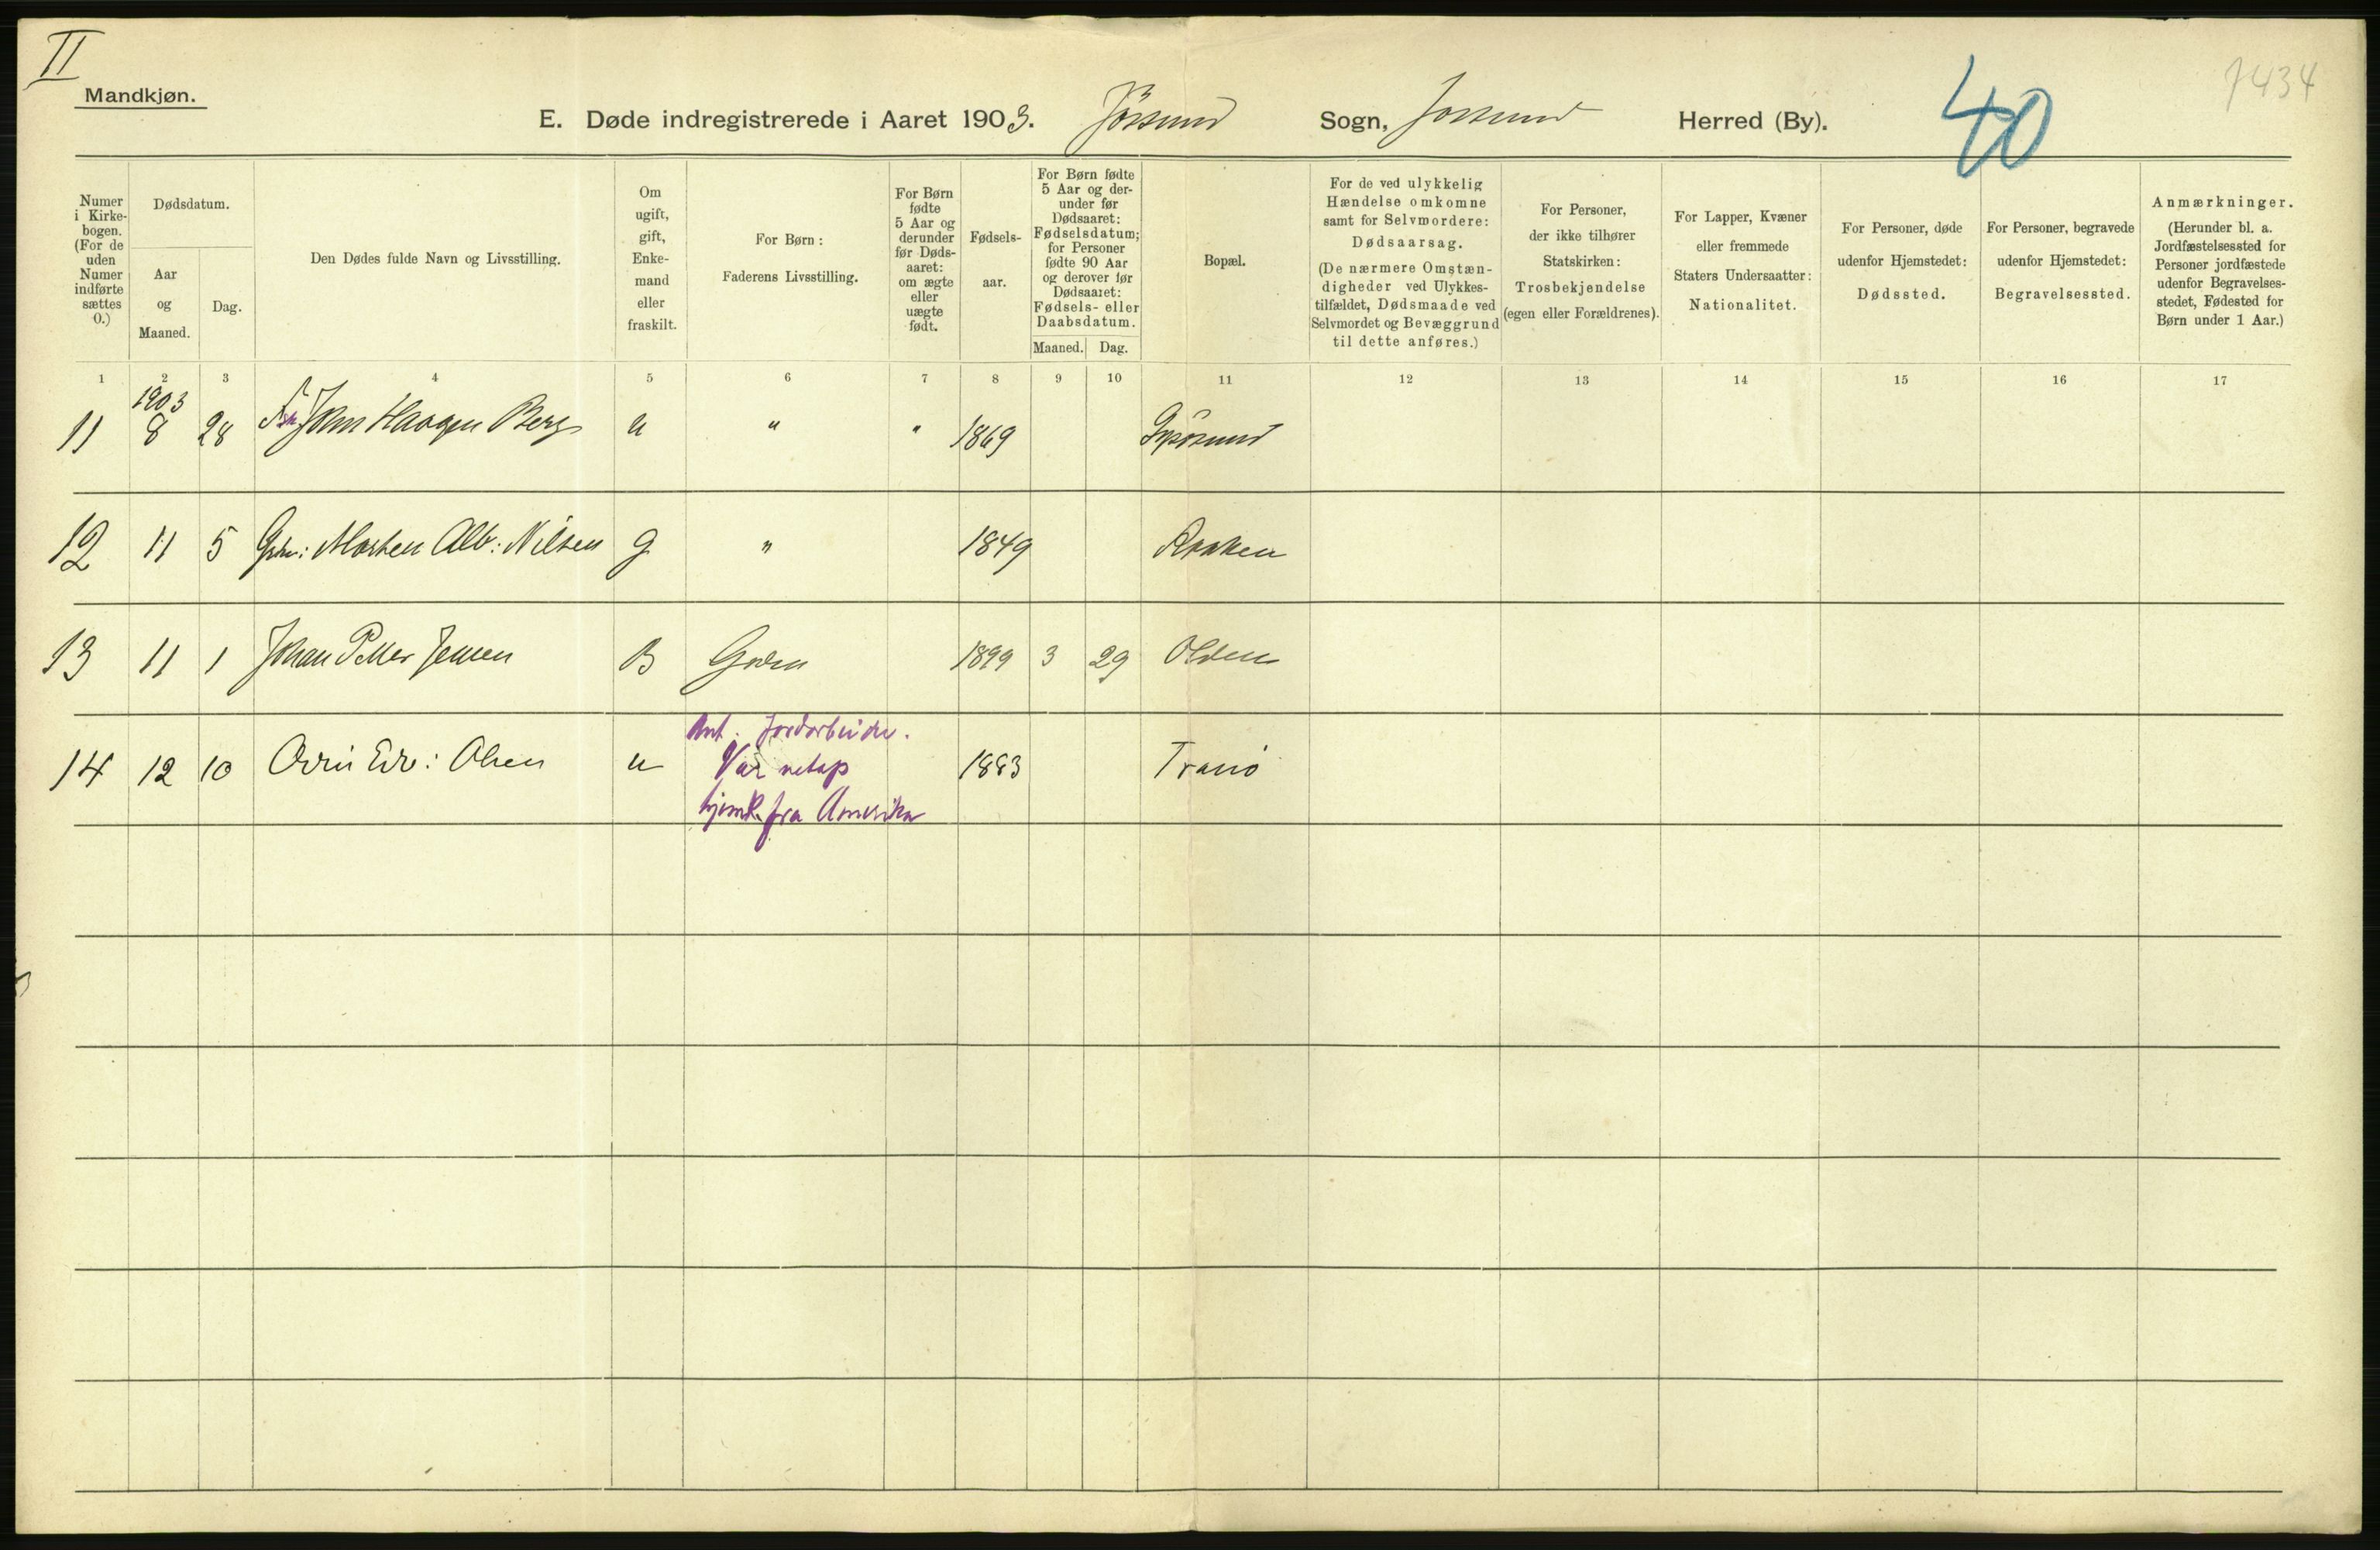 II
Mandkjøn.
E. Døde indregistrerede i Aaret 1903. Jøssund Sogn, Jossund Herred (By).
40
7434
Numer i Kirkebogen. (For de uden Numer indførte sættes 0.)
Dødsdatum.
Aar og Maaned.
Dag.
Den Dødes fulde Navn og Livsstilling.
Om ugift, gift, Enkemand eller fraskilt.
For Børn: Faderens Livsstilling.
For Børn fødte 5 Aar og derunder før Dødsaaret: om ægte eller uægte født.
Fødselsaar.
For Børn fødte 5 Aar og derunder før Dødsaaret: Fødselsdatum; for Personer fødte 90 Aar og derover før Dødsaaret: Fødsels- eller Daabsdatum.
Maaned. Dag.
Bopæl.
For de ved ulykkelig Hændelse omkomne samt for Selvmordere: Dødsaarsag. (De nærmere Omstændigheder ved Ulykkestilfældet, Dødsmaade ved Selvmordet og Bevæggrund til dette anføres.)
For Personer, der ikke tilhører Statskirken: Trosbekjendelse (egen eller Forældrenes).
For Lapper, Kvæner eller fremmede Staters Undersaatter: Nationalitet.
For Personer, døde udenfor Hjemstedet: Dødssted.
For Personer, begravede udenfor Hjemstedet: Begravelsessted.
Anmærkninger. (Herunder bl. a. Jordfæstelsessted for Personer jordfæstede udenfor Begravelsesstedet, Fødested for Børn under 1 Aar.)
1 2 3 4 5 6 7 8 9 10 11 12 13 14 15 16 17
1903
11 8 28 John Haagen Berg u " " 1869
12 11 5 Morten Alb: Nilsen g " 1849
13 11 1 Johan Petter Jensen B 1899 3 29 Olden
Ant. Jordarbeider.
14 12 10 Edv: Olsen u Var netop 1883 Tranø
hjemk. fra Amerika